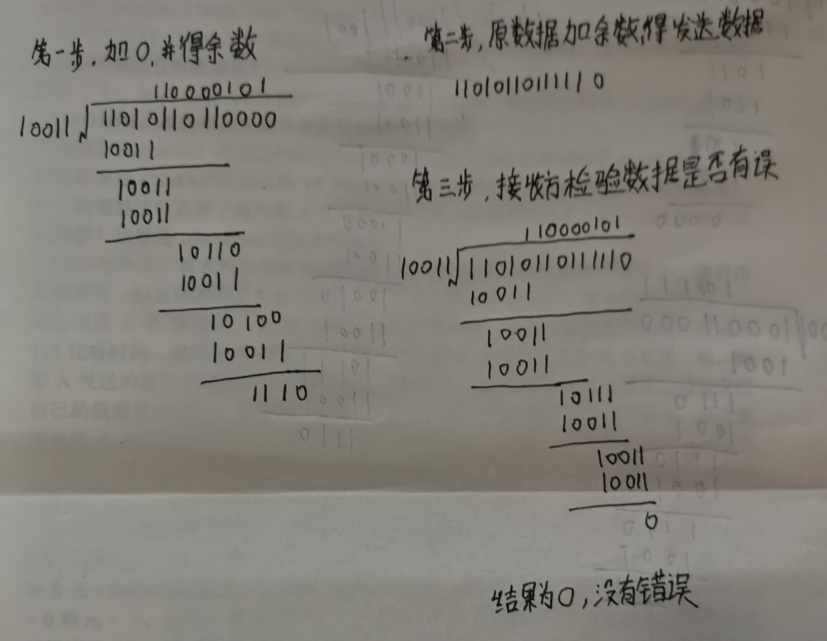 第一步，加0，并得余数
110000101
10011 11010110110000
10011
10011
10011
10110
10011
10100
10011
1110
第二步，原数据加余数，得发送数据
11010110111110
第三步，接收方检验数据是否有误
110000101
10011 11010110111110
10011
10011
10011
10111
10011
10011
10011
0
结果为0，没有错误